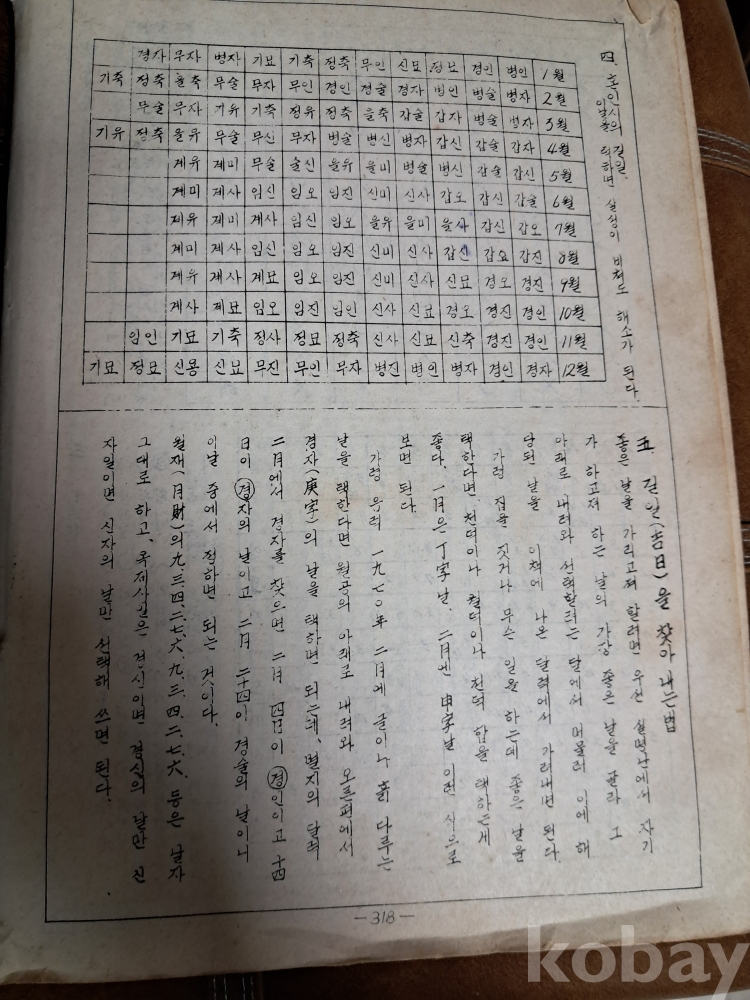 四. 혼인시의 길일.
이날을 택하면 살성이 비쳐도 해소가 된다.
1월 병인 경인 정묘 신묘 무인 정축 기축 기묘 병자 무자 경자
2월 병자 병술 병인 경자 경술 경인 무인 무자 무술 을축 정축 기축
3월 병자 병술 갑자 갑술 을축 정축 정유 기축 기유 무자 무술
4월 갑자 갑술 갑신 병자 병신 병술 무자 무신 무술 을유 정축 기유
5월 갑술 갑신 병신 병술 을미 을유 술신 무술 계미 계유
6월 갑술 갑신 갑오 신사 신미 임진 임오 임신 계사 계미
7월 갑오 갑신 을사 을미 을유 임오 임신 계사 계미 계유
8월 갑진 갑오 갑신 신사 신미 임진 임오 임신 계사 계미
9월 경진 경오 신묘 신사 신미 임진 임오 계묘 계사 계유
10월 경인 경진 경오 신묘 신사 임인 임진 임오 계묘 계사
11월 경인 경진 신축 신묘 신사 정축 정묘 정사 기축 기묘 임인
12월 경자 경인 병자 병인 병진 무자 무인 무진 신묘 정묘 기묘
五. 길일(吉日)을 찾아 내는법
좋은 날을 가리고져 할려면 우선 설명난에서 자기
가 하고져 하는 날의 가장 좋은 날을 골라 그
아래로 내려와 선택할려는 달에서 머물러 이에 해
당된 날을 이책에 나온 달력에서 가려내면 된다.
가령 집을 짓거나 무슨 일을 하는데 좋은 날을
택한다면 천덕이나 월덕이나 천덕 합을 택하는게
좋다. 一月은 丁字날. 二月엔 申字날 이런 식으로
보면 된다.
가령 음력 一九七○年 二月에 굴이나 흙 다루는
날을 택한다면 월공의 아래로 내려와 오른편에서
경자(庚字)의 날을 택하면 되는데, 별지의 달력
二月에서 경자를 찾으면 二月 四日이 경인이고 十四
日이 경자의 날이고 二月 二十四이 경술의 날이니
이날 중에서 정하면 되는 것이다.
월재(月財)의 九.三.四.二.七.六.九.三.四.二.七.六. 등은 날자
그대로 하고, 옥제사일은 신이면 의 날만 신
자일이면 신자의 날만 선택해 쓰면 된다.
—318—
kobay